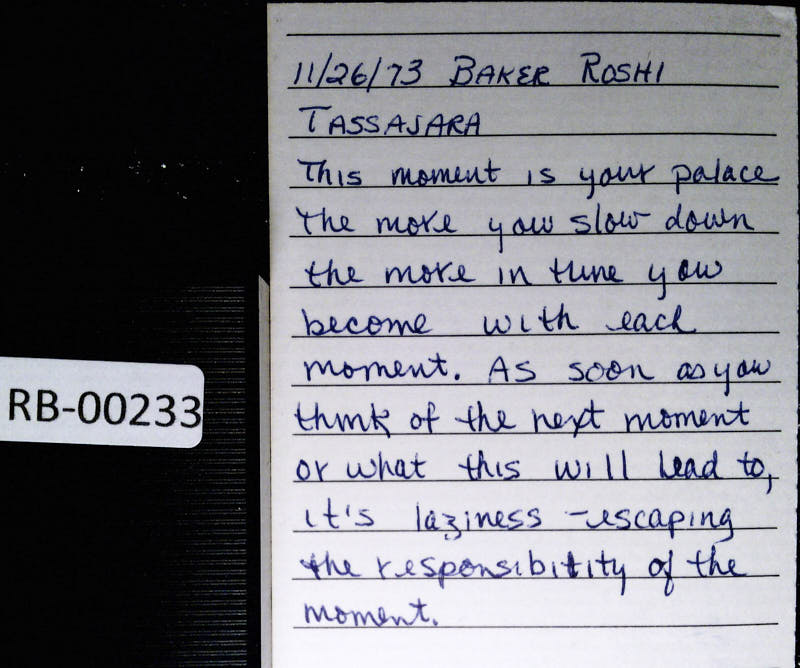 11/26/73 BAKER ROSHI
TASSAJARA
This moment is your palace
The more you slow down
the more in tune you
become with each
moment. As soon as you
think of the next moment
or what this will lead to,
it's laziness - escaping
the responsibility of the
moment.
RB-00233